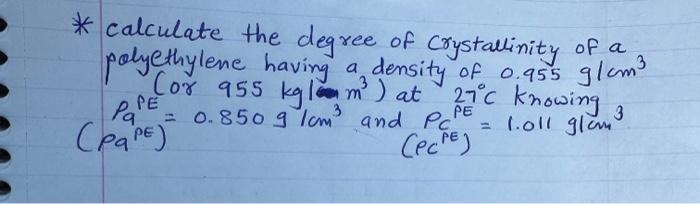 * calculate the degree of crystallinity of a
polyethylene having a density of 0.955 g/cm³
(or 955 kg/m³) at 27°c knowing
ρa^PE = 0.850 g/cm³ and ρc^PE = 1.011 g/cm³
(ρa^PE) (ρc^PE)